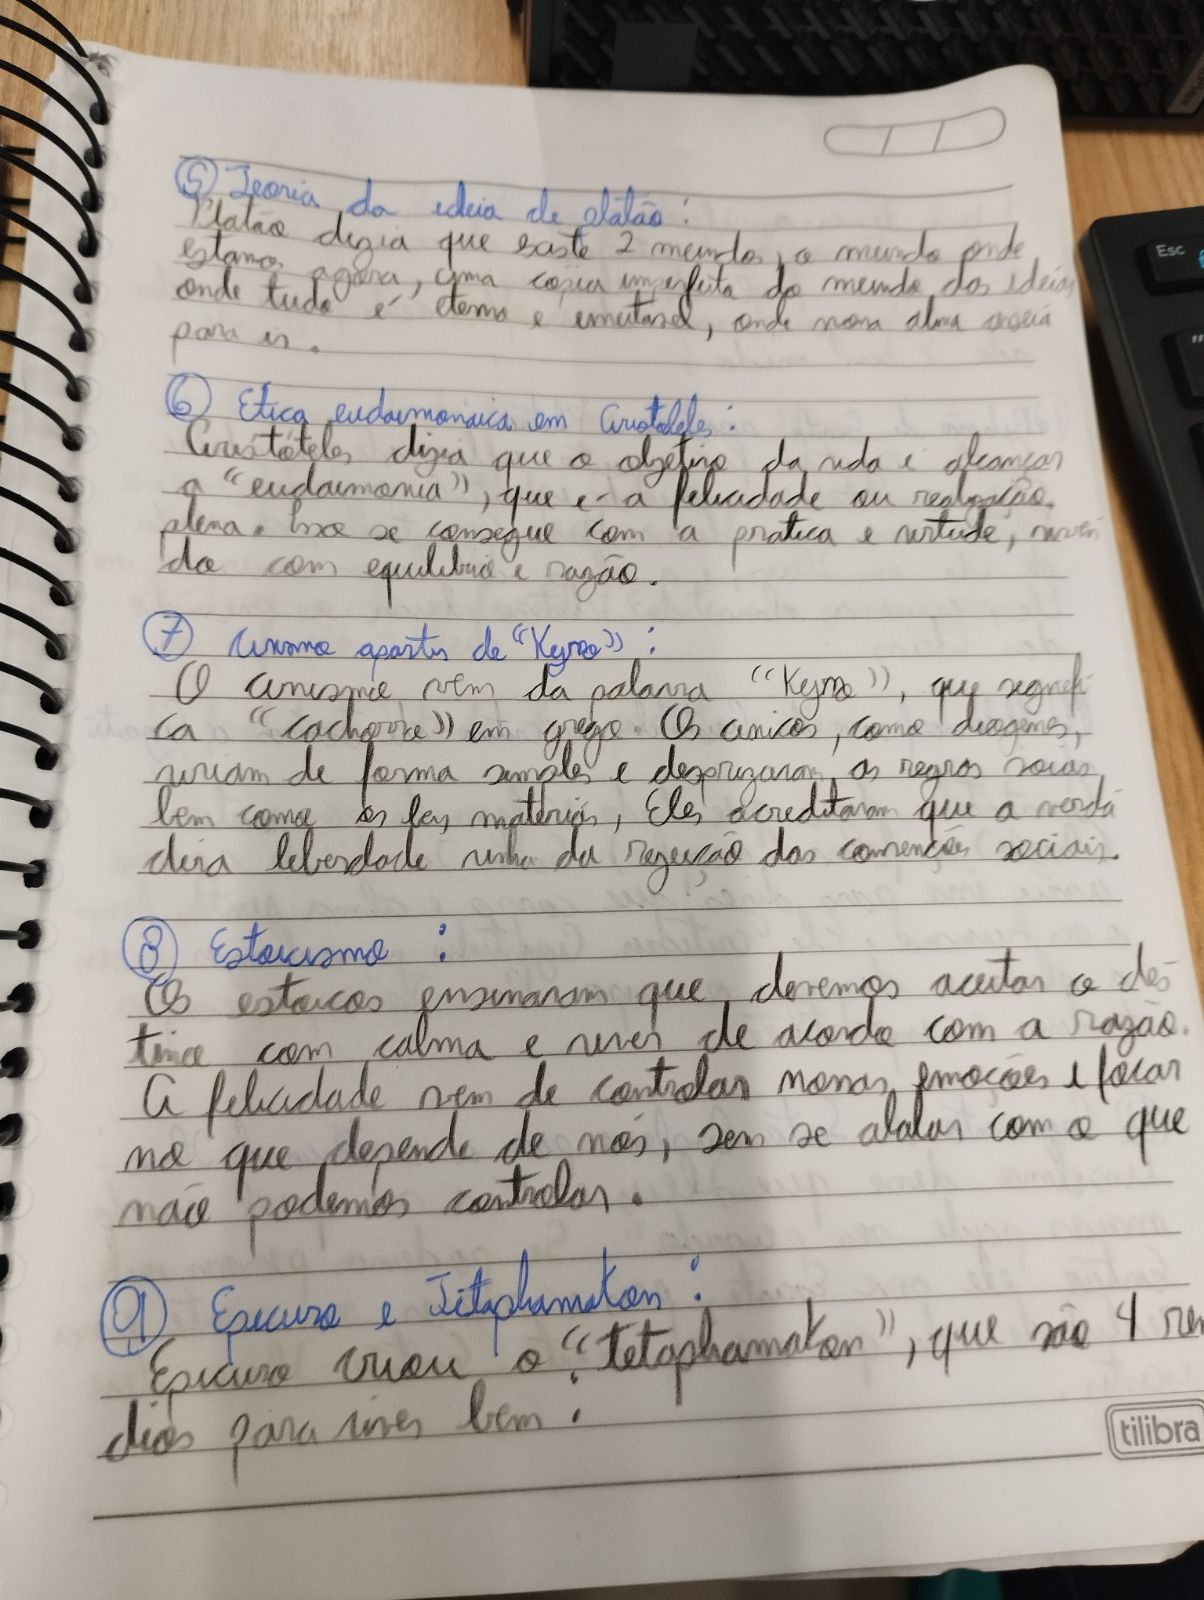 5 Teoria da ideia de platão:
Platão dizia que existe 2 mundos, o mundo onde
estamos agora, uma copia imperfeita do mundo das ideias
onde tudo é eterno e imutavel, onde nossa alma anseia
para ir.
6 Etica eudaimonaica em Aristoteles:
Aristóteles dizia que o objetivo da vida é alcançar
a "eudaimonia", que é a felicidade ou realização
plena. Isso se consegue com a pratica e virtude, viven
do com equilibrio e razão.
7 Cinismo apartir de "Kyno":
O cinismo vem da palavra "Kyno", que signifi
ca "cachorro" em grego. Os cinicos, como diogenes,
viviam de forma simples e desprezavam as regras sociais
bem como os materiais, Eles acreditavam que a verda
deira liberdade vinha da rejeição das convenções sociais.
8 Estoicismo:
Os estoicos ensinavam que devemos aceitar o des
tino com calma e viver de acordo com a razão.
A felicidade vem de controlar nossas emoções e focar
no que depende de nós, sem se abalar com o que
não podemos controlar.
9 Epicuro e Tetaphamakon:
Epicuro criou o "tetaphamakon", que são 4 remé
dios para viver bem:
tilibra
Esc